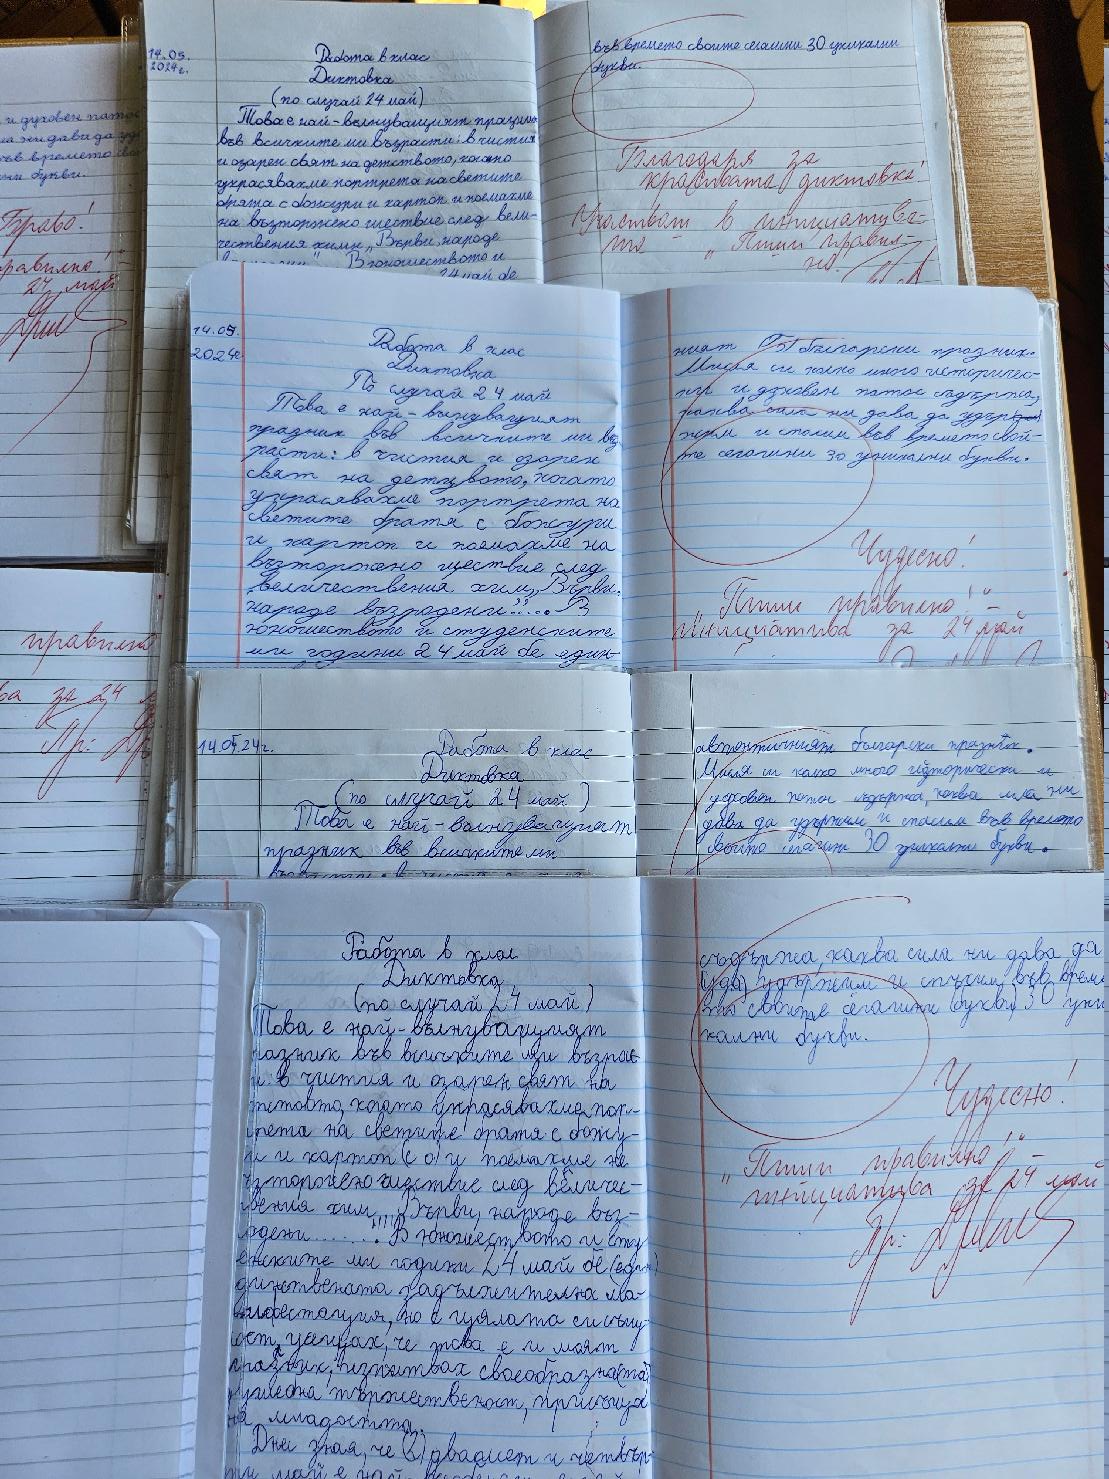 и духовен патос
ни дава да
във времето
букви.
Браво!
правилно!
24 май
правилно
за 24
Пр:
14.05.
2024г.
Работа в клас
Диктовка
(по случай 24 май)
Това е най-вълнуващият празник
във всичките ми възрасти: в чистия
и озарен свят на детството, когато
украсявахме портрета на светите
братя с божури и картон и поемахме
на възторжено шествие след вели-
чествения химн „Върви, народе
В юношеството и
24 май бе
във времето своите сегашни 30 уникални
букви.
Благодаря за
красивата диктовка!
Участвам в инициатива-
та - "Пиши правил-
но.
14.05.
2024г
Работа в клас
Диктовка
По случай 24 май
Това е най-вълнуващият
празник във всичките ми въз
расти: в чистия и озарен
свят на детцвото, когато
украсявахме портрета на
светите братя с божури
и картон и поемахме на
възторжено шествие след
величествения хим„ Върви,
народе възродени“.... В
юношеството и студенските
ми години 24 май бе един-
ният български празник.
Мисля си колко много историчес-
ки и духовен патос съдържа,
каква сила ни дава да удър
жим и спасим във времето свои-
те сегашни 30 уникални букви.
Чудесно!
„Пиши правилно!“ -
инициатива за 24 май
14.05.24г.
Работа в клас
Диктовка
(по случай 24 май)
Това е най-вълнуващият
празник във всичките ми
автентичният български празник.
Мисля си колко много исторически и
духовен патос съдържа, каква сила ни
дава да удържим и спасим във времето
своито сегашни 30 уникални букви.
Работа в клас
Диктовка
(по случай 24 май)
Това е най-вълнуващият
разник във всичките ми възрас
и: в чистия и озарен свят на
когато украсявахме пор-
трета на светите братя с божу-
и и картон (с о) и поемахме на
шествие след величес-
вения хим „Върви, народе въз-
родени........“ В юношеството и сту
енските ми години 24 май бе (един)
динствената задължителна ма-
нифестация, но с цялата си същ-
ост, усещах, че това е и моят
празник; изпитвах своеобразна(та)
тържественост, присъща
на младостта.
Днес зная, че (2) двадесет и четвър-
ти май е най-
съдържа, каква сила ни дава да
(уда) удържим и спасим във време
то своите сегашни (букви) 30 уни
кални букви.
Чудесно!
„Пиши правилно!“ -
инициатива за 24 май
Пр: